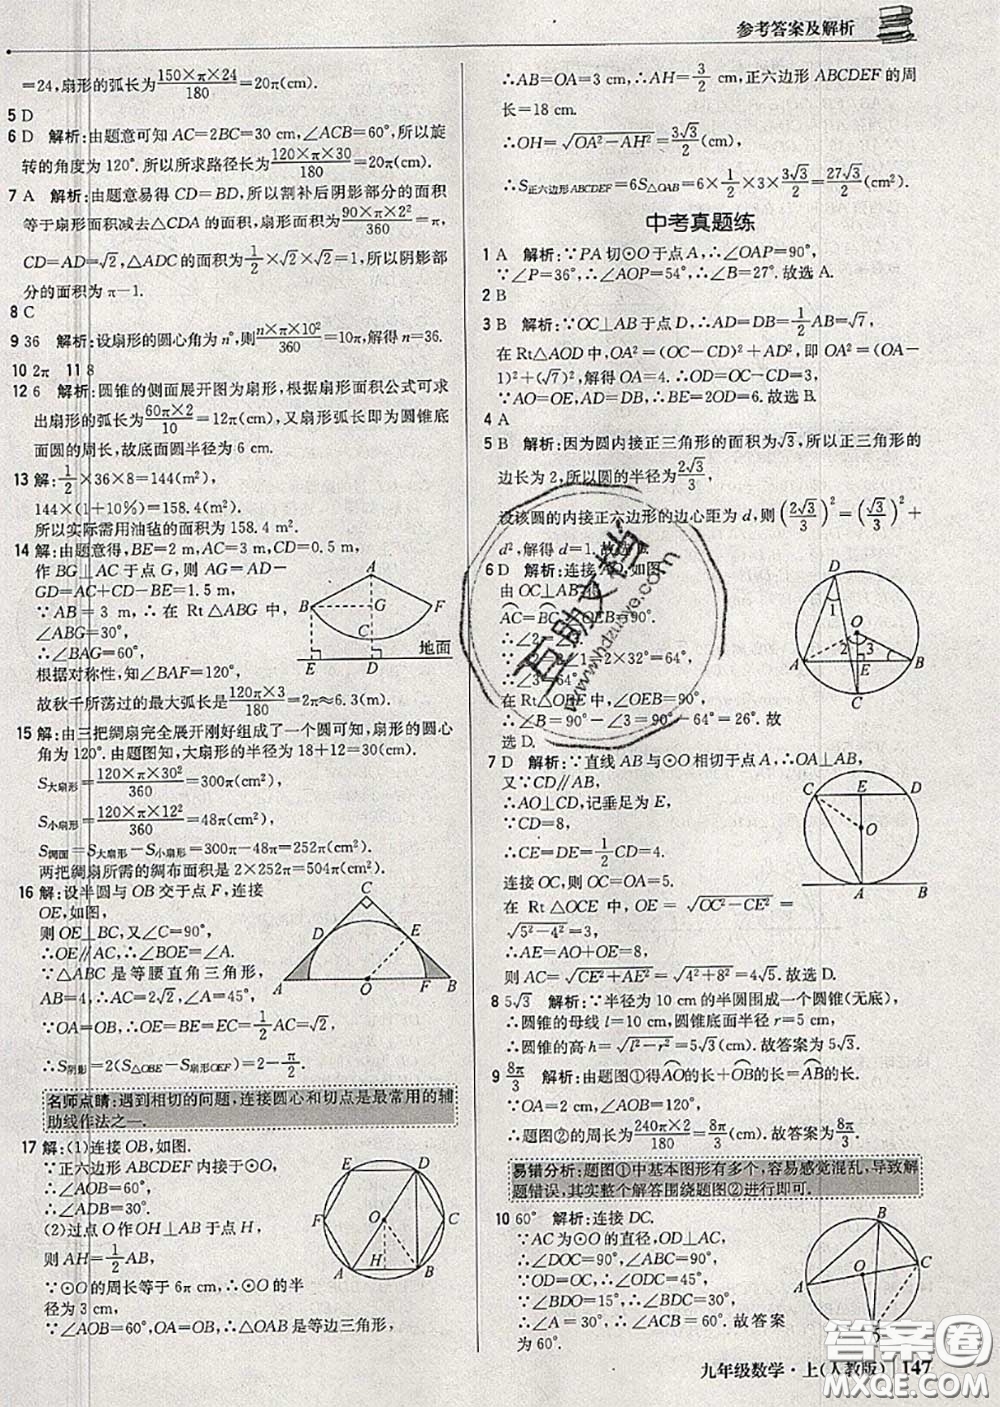 参考答案及解析
=24,扇形的弧长为150×π×24/180=20π(cm).
5 D
6 D 解析:由题意可知 AC=2BC=30 cm,∠ACB=60°,所以旋
转的角度为120°.所以所求路径长为120×π×30/180=20π(cm).
7 A 解析:由题意易得 CD=BD,所以割补后阴影部分的面积
等于扇形面积减去△CDA 的面积,扇形面积为90×π×2²/360=π,
CD=AD=√2,△ADC 的面积为1/2×√2×√2=1.所以阴影部
分的面积为 π-1.
8 C
9 36 解析:设扇形的圆心角为 n°,则n×π×10²/360=10π,解得 n=36.
10 2π 11 8
12 6 解析:圆锥的侧面展开图为扇形,根据扇形面积公式可求
出扇形的弧长为60π×2/10=12π(cm),又扇形弧长即为圆锥底
面圆的周长,故底面圆半径为 6 cm.
13 解:1/2×36×8=144(m²)
144×(1+10%)=158.4(m²).
所以实际需用油毡的面积为 158.4 m².
14 解:由题意得,BE=2 m,AC=3 m,CD=0.5 m,
作 BG⊥AC 于点 G,则 AG=AD-
GD=AC+CD-BE=1.5 m,
∵AB=3 m,∴在 Rt△ABG 中,
∠ABG=30°,
∴∠BAG=60°,
根据对称性,知∠BAF=120°,
故秋千所荡过的最大弧长是120π×3/180=2π≈6.3(m).
A
B
G
F
E
D
地面
15 解:由三把绸扇完全展开刚好组成了一个圆可知,扇形的圆心
角为 120°.由题图知,大扇形的半径为 18+12=30(cm).
S大扇形=120×π×30²/360=300π(cm²),
S小扇形=120×π×12²/360=48π(cm²),
S绸面=S大扇形-S小扇形=300π-48π=252π(cm²).
两把绸扇所需的绸布面积是 2×252π=504π(cm²).
16 解:设半圆与 OB 交于点 F,连接
OE,如图,
则 OE⊥BC,又∠C=90°,
∴OE∥AC,∴∠BOE=∠A.
∵△ABC 是等腰直角三角形,
AB=4,∴AC=2√2,∠A=45°,
∵OA=OB,∴OE=BE=EC=1/2AC=√2,
∴S阴影=2(S△OBE-S扇形OEF)=2-π/2.
C
D
E
A
O
F
B
名师点睛:遇到相切的问题,连接圆心和切点是最常用的辅
助线作法之一.
17 解:(1)连接 OB,如图.
∵正六边形 ABCDEF 内接于⊙O,
∴∠AOB=60°,
∴∠ADB=30°.
(2)过点 O 作 OH⊥AB 于点 H,
则 AH=1/2AB,
∵⊙O 的周长等于 6π cm,∴⊙O 的半
径为 3 cm,
∵∠AOB=60°,OA=OB,∴△OAB 是等边三角形,
E
D
F
O
C
H
A
B
∴AB=OA=3 cm,∴AH=3/2 cm,正六边形 ABCDEF 的周
长=18 cm.
∴OH=√(OA²-AH²)=3√3/2(cm),
∴S正六边形ABCDEF=6S△OAB=6×1/2×3×3√3/2=27√3/2(cm²).
中考真题练
1 A 解析:∵PA 切⊙O 于点 A,∴∠OAP=90°,
∵∠P=36°,∴∠AOP=54°,∴∠B=27°.故选 A.
2 B
3 B 解析:∵OC⊥AB 于点 D,∴AD=DB=1/2AB=√7,
在 Rt△AOD 中,OA²=(OC-CD)²+AD²,即 OA²=(OA-
1)²+(√7)²,解得 OA=4.∴OD=OC-CD=3,
∵AO=OE,AD=DB,∴BE=2OD=6.故选 B.
4 A
5 B 解析:因为圆内接正三角形的面积为√3,所以正三角形的
边长为 2,所以圆的半径为2√3/3,
设该圆的内接正六边形的边心距为 d,则(2√3/3)²=(√3/3)²+
d²,解得 d=1.故选
6 D 解析:连接
由 OC⊥AB,
AC=BC,
∴∠2=
∵∠2=2∠1=2×32°=64°,
∴∠3=64°,
在 Rt△OBE 中,∠OEB=90°,
∴∠B=90°-∠3=90°-64°=26°.故
选 D.
D
1
O
2
3
A
E
B
C
7 D 解析:∵直线 AB 与⊙O 相切于点 A,∴OA⊥AB,
又∵CD∥AB,
∴AO⊥CD,记垂足为 E,
∵CD=8,
∴CE=DE=1/2CD=4.
连接 OC,则 OC=OA=5,
在 Rt△OCE 中,OE=√(OC²-CE²)=
√(5²-4²)=3,
∴AE=AO+OE=8,
则 AC=√(CE²+AE²)=√(4²+8²)=4√5.故选 D.
C
E
D
O
A
B
8 5√3 解析:∵半径为 10 cm 的半圆围成一个圆锥(无底),
∴圆锥的母线 l=10 cm,圆锥底面半径 r=5 cm,
∴圆锥的高 h=√(l²-r²)=5√3(cm).故答案为 5√3.
9 8π/3 解析:由题图①得AO的长+OB的长=AB的长,
∴题图②的周长为240π×2/180=8π/3.故答案为8π/3.
易错分析:题图①中基本图形有多个,容易感觉混乱,导致解
题错误,其实整个解答围绕题图②进行即可.
10 60° 解析:连接 DC.
∵AC 为⊙O 的直径,OD⊥AC,
∴∠DOC=90°,∠ABC=90°,
∵OD=OC,∴∠ODC=45°,
∵∠BDO=15°,∴∠BDC=30°,
∴∠A=30°,∴∠ACB=60°,故答案
为 60°.
B
C
A
O
九年级数学·上(人教版) 147
互助文档
www.hdzuoye.com
答案圈
MXQE.COM